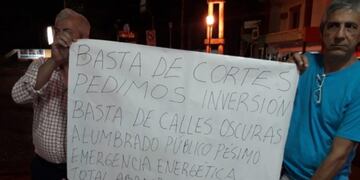 BASTA DE CORTES
PEDIMOS INVERSION
BASTA DE CALLES OSCURAS
ALUMBRADO PÚBLICO PÉSIMO
EMERGENCIA ENERGETICA
TOTAL